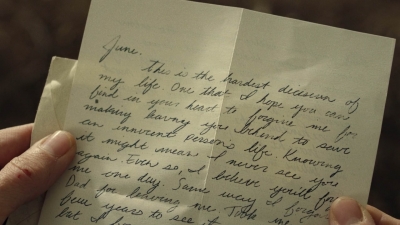 June.
This is the hardest decision of
my life. One that I hope you can
find in your heart to forgive me for
making leaving you behind to save
an innocent person's life. Knowing
it might mean I never see you
again. Even so, I believe you'll forgive
me one day. Same way I forgave
Dad for leaving me. Took me
years to see it
but I